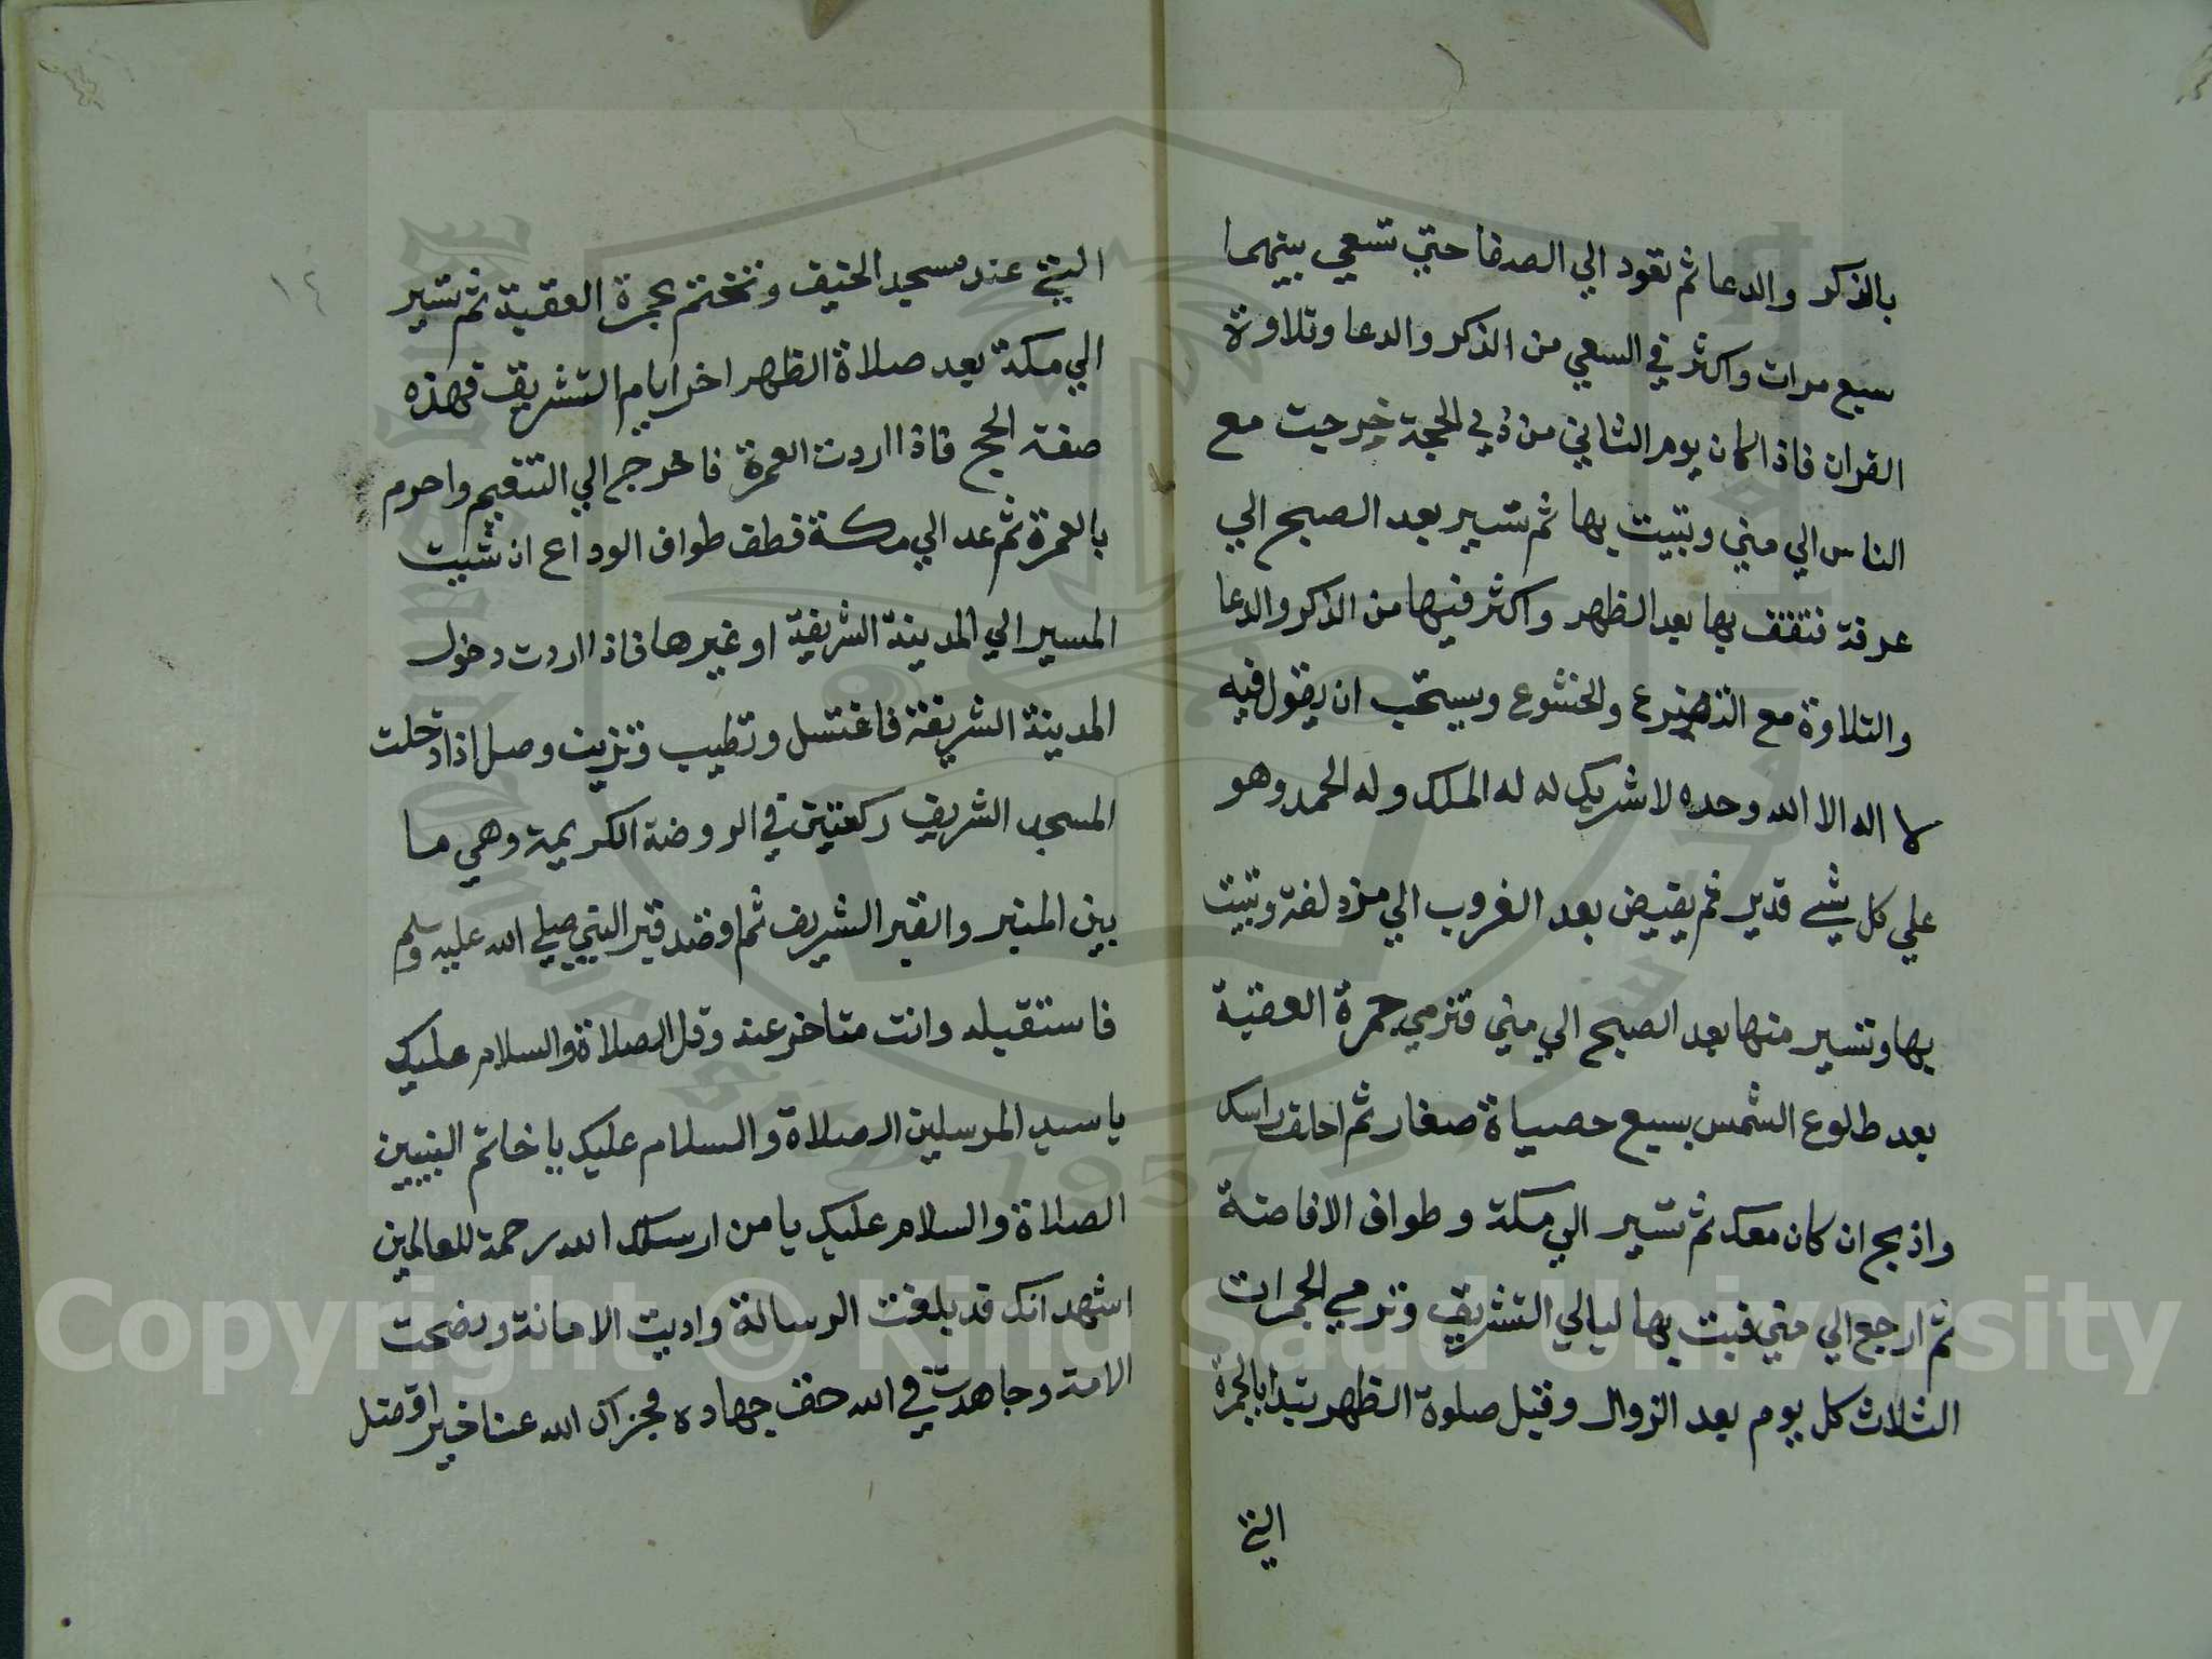 بالذكر والدعا ثم تعود الي الصفا حتي تسعي بينهما
سبع مرات واكثر في السعي من الذكر والدعا وتلاوة
القران فاذا كان يوم الثاني من ذي الحجة خرجت مع
الناس الي مني وتبيت بها ثم تسير بعد الصبح الي
عرفة فتقف بها بعد الظهر واكثر فيها من الذكر والدعا
والتلاوة مع التضرع والخشوع ويستحب ان يقول فيه
لا اله الا الله وحده لا شريك له له الملك وله الحمد وهو
علي كل شي قدير ثم يفيض بعد الغروب الي مزدلفة وتبيت
بها وتسير منها بعد الصبح الي مني فترمي جمرة العقبة
بعد طلوع الشمس بسبع حصياة صغار ثم احلق راسك
واذبح ان كان معك ثم تسير الي مكة وطواف الافاضة
ثم ارجع الي مني فبت بها ليالي التشريق وترمي الجمرات
الثلاث كل يوم بعد الزوال وقبل صلوة الظهر تبدا بالجمرة
التي
١٤
التي عند مسجد الخيف وتختم بجمرة العقبة ثم تسير
الي مكة بعد صلاة الظهر اخر ايام التشريق فهذه
صفة الحج فاذا اردت العمرة فاخرج الي التنعيم واحرم
بالعمرة ثم عد الي مكة فطف طواف الوداع ان شيت
المسير الي المدينة الشريفة او غيرها فاذا اردت دخول
المدينة الشريفة فاغتسل وتطيب وتزين وصل اذا دخلت
المسجد الشريف ركعتين في الروضة الكريمة وهي ما
بين المنبر والقبر الشريف ثم اقصد قبر النبي صلي الله عليه وسلم
فاستقبله وانت متاخر عنه وقل الصلاة والسلام عليك
يا سيد المرسلين الصلاة والسلام عليك يا خاتم النبيين
الصلاة والسلام عليك يا من ارسلك الله رحمة للعالمين
اشهد انك قد بلغت الرسالة واديت الامانة ونصحت
الامة وجاهدت في الله حق جهاده فجزاك الله عنا خيرا افضل
Copyright © King Saud University
1957